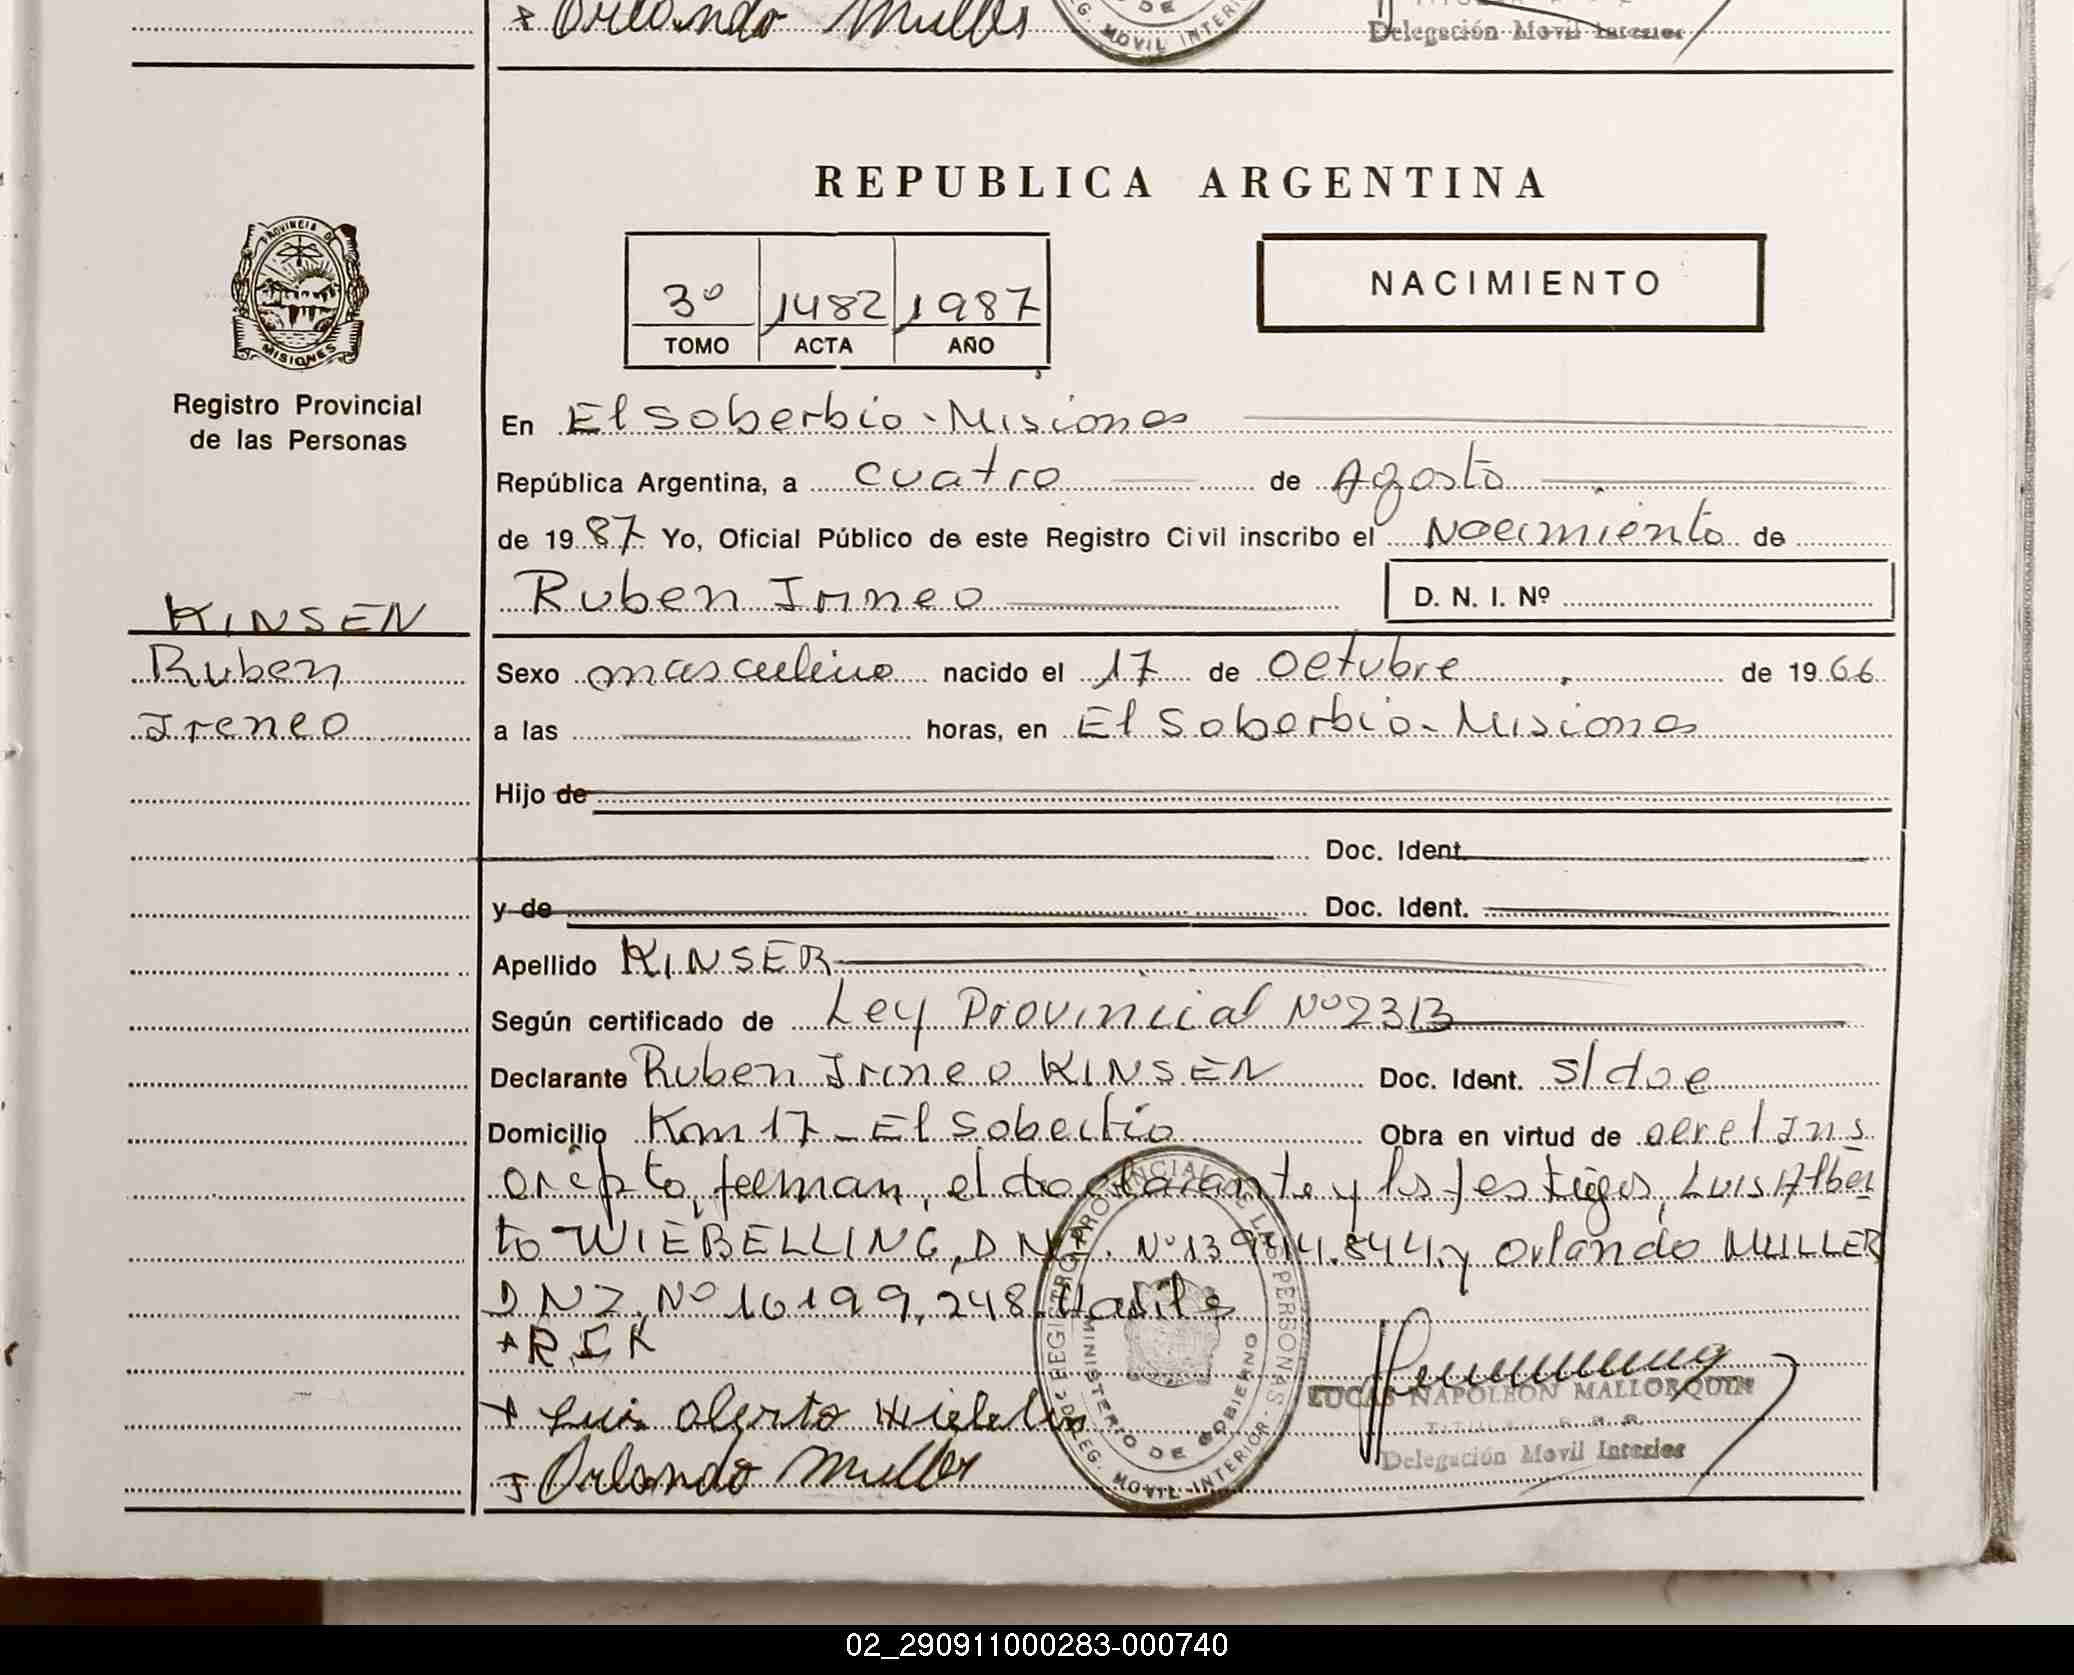 Orlando Muller
DE
DEG. MOVIL INTERIOR
Delegación Movil Interior
REPUBLICA ARGENTINA
PROVINCIA DE
MISIONES
3º 1482 1987
TOMO ACTA AÑO
NACIMIENTO
Registro Provincial
de las Personas
En El Soberbio - Misiones
República Argentina, a cuatro de Agosto
de 1987 Yo, Oficial Público de este Registro Civil inscribo el Nacimiento de
Ruben Irineo D. N. I. Nº
KINSEN
Ruben
Ireneo
Sexo masculino nacido el 17 de Octubre de 1966
a las horas, en El Soberbio - Misiones
Hijo de
Doc. Ident.
y de Doc. Ident.
Apellido KINSER
Según certificado de Ley Provincial Nº 2313
Declarante Ruben Irineo KINSEN Doc. Ident. s/doc
Domicilio Km 17 - El Soberbio Obra en virtud de
el declarante y los testigos, Luis Alber
to WIEBELLING, D.N.I. Nº y Orlando MULLER
DNI. Nº 16199.248.
+ R I K
+ Luis Alberto
+ Orlando Muller
REGISTRO PROVINCIAL DE LAS PERSONAS
MINISTERIO DE GOBIERNO
DELEG. MOVIL INTERIOR
LUCAS NAPOLEON MALLORQUIN
Delegación Movil Interior
02_290911000283-000740